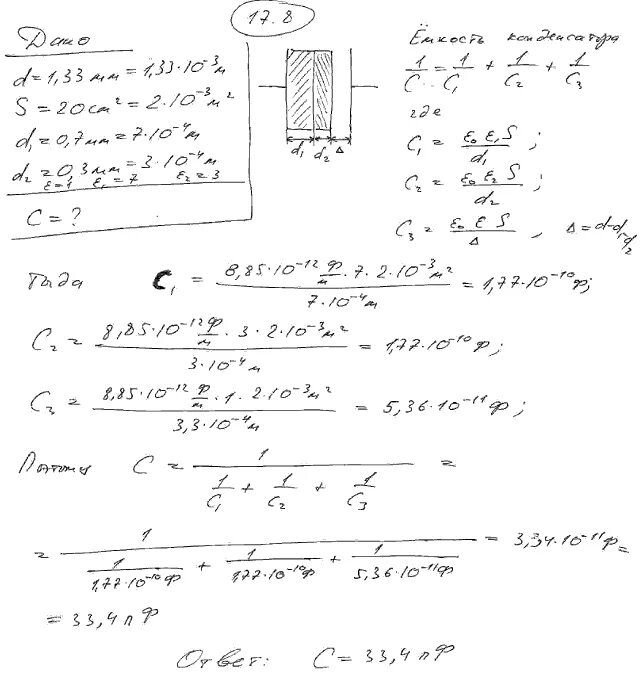 17.8
Дано
d = 1,33 мм = 1,33·10⁻³м
S = 20 см² = 2·10⁻³м²
d₁ = 0,7мм = 7·10⁻⁴м
d₂ = 0,3 мм = 3·10⁻⁴м
ε=1 ε₁=7 ε₂=3
C = ?
d₁ d₂ Δ
Ёмкость конденсатора
1/C = 1/C₁ + 1/C₂ + 1/C₃
где
C₁ = ε₀ ε₁ S / d₁ ;
C₂ = ε₀ ε₂ S / d₂ ;
C₃ = ε₀ ε S / Δ , Δ = d-d₁-d₂
Тогда C₁ = 8,85·10⁻¹² ф/м · 7 · 2·10⁻³м² / 7·10⁻⁴м = 1,77·10⁻¹⁰ф;
C₂ = 8,85·10⁻¹² ф/м · 3 · 2·10⁻³м² / 3·10⁻⁴м = 1,77·10⁻¹⁰ф;
C₃ = 8,85·10⁻¹² ф/м · 1 · 2·10⁻³м² / 3,3·10⁻⁴м = 5,36·10⁻¹¹ф;
C = 1 / (1/C₁ + 1/C₂ + 1/C₃) =
= 1 / (1/1,77·10⁻¹⁰ф + 1/1,77·10⁻¹⁰ф + 1/5,36·10⁻¹¹ф) = 3,34·10⁻¹¹ф =
= 33,4 пФ
Ответ: C = 33,4 пФ